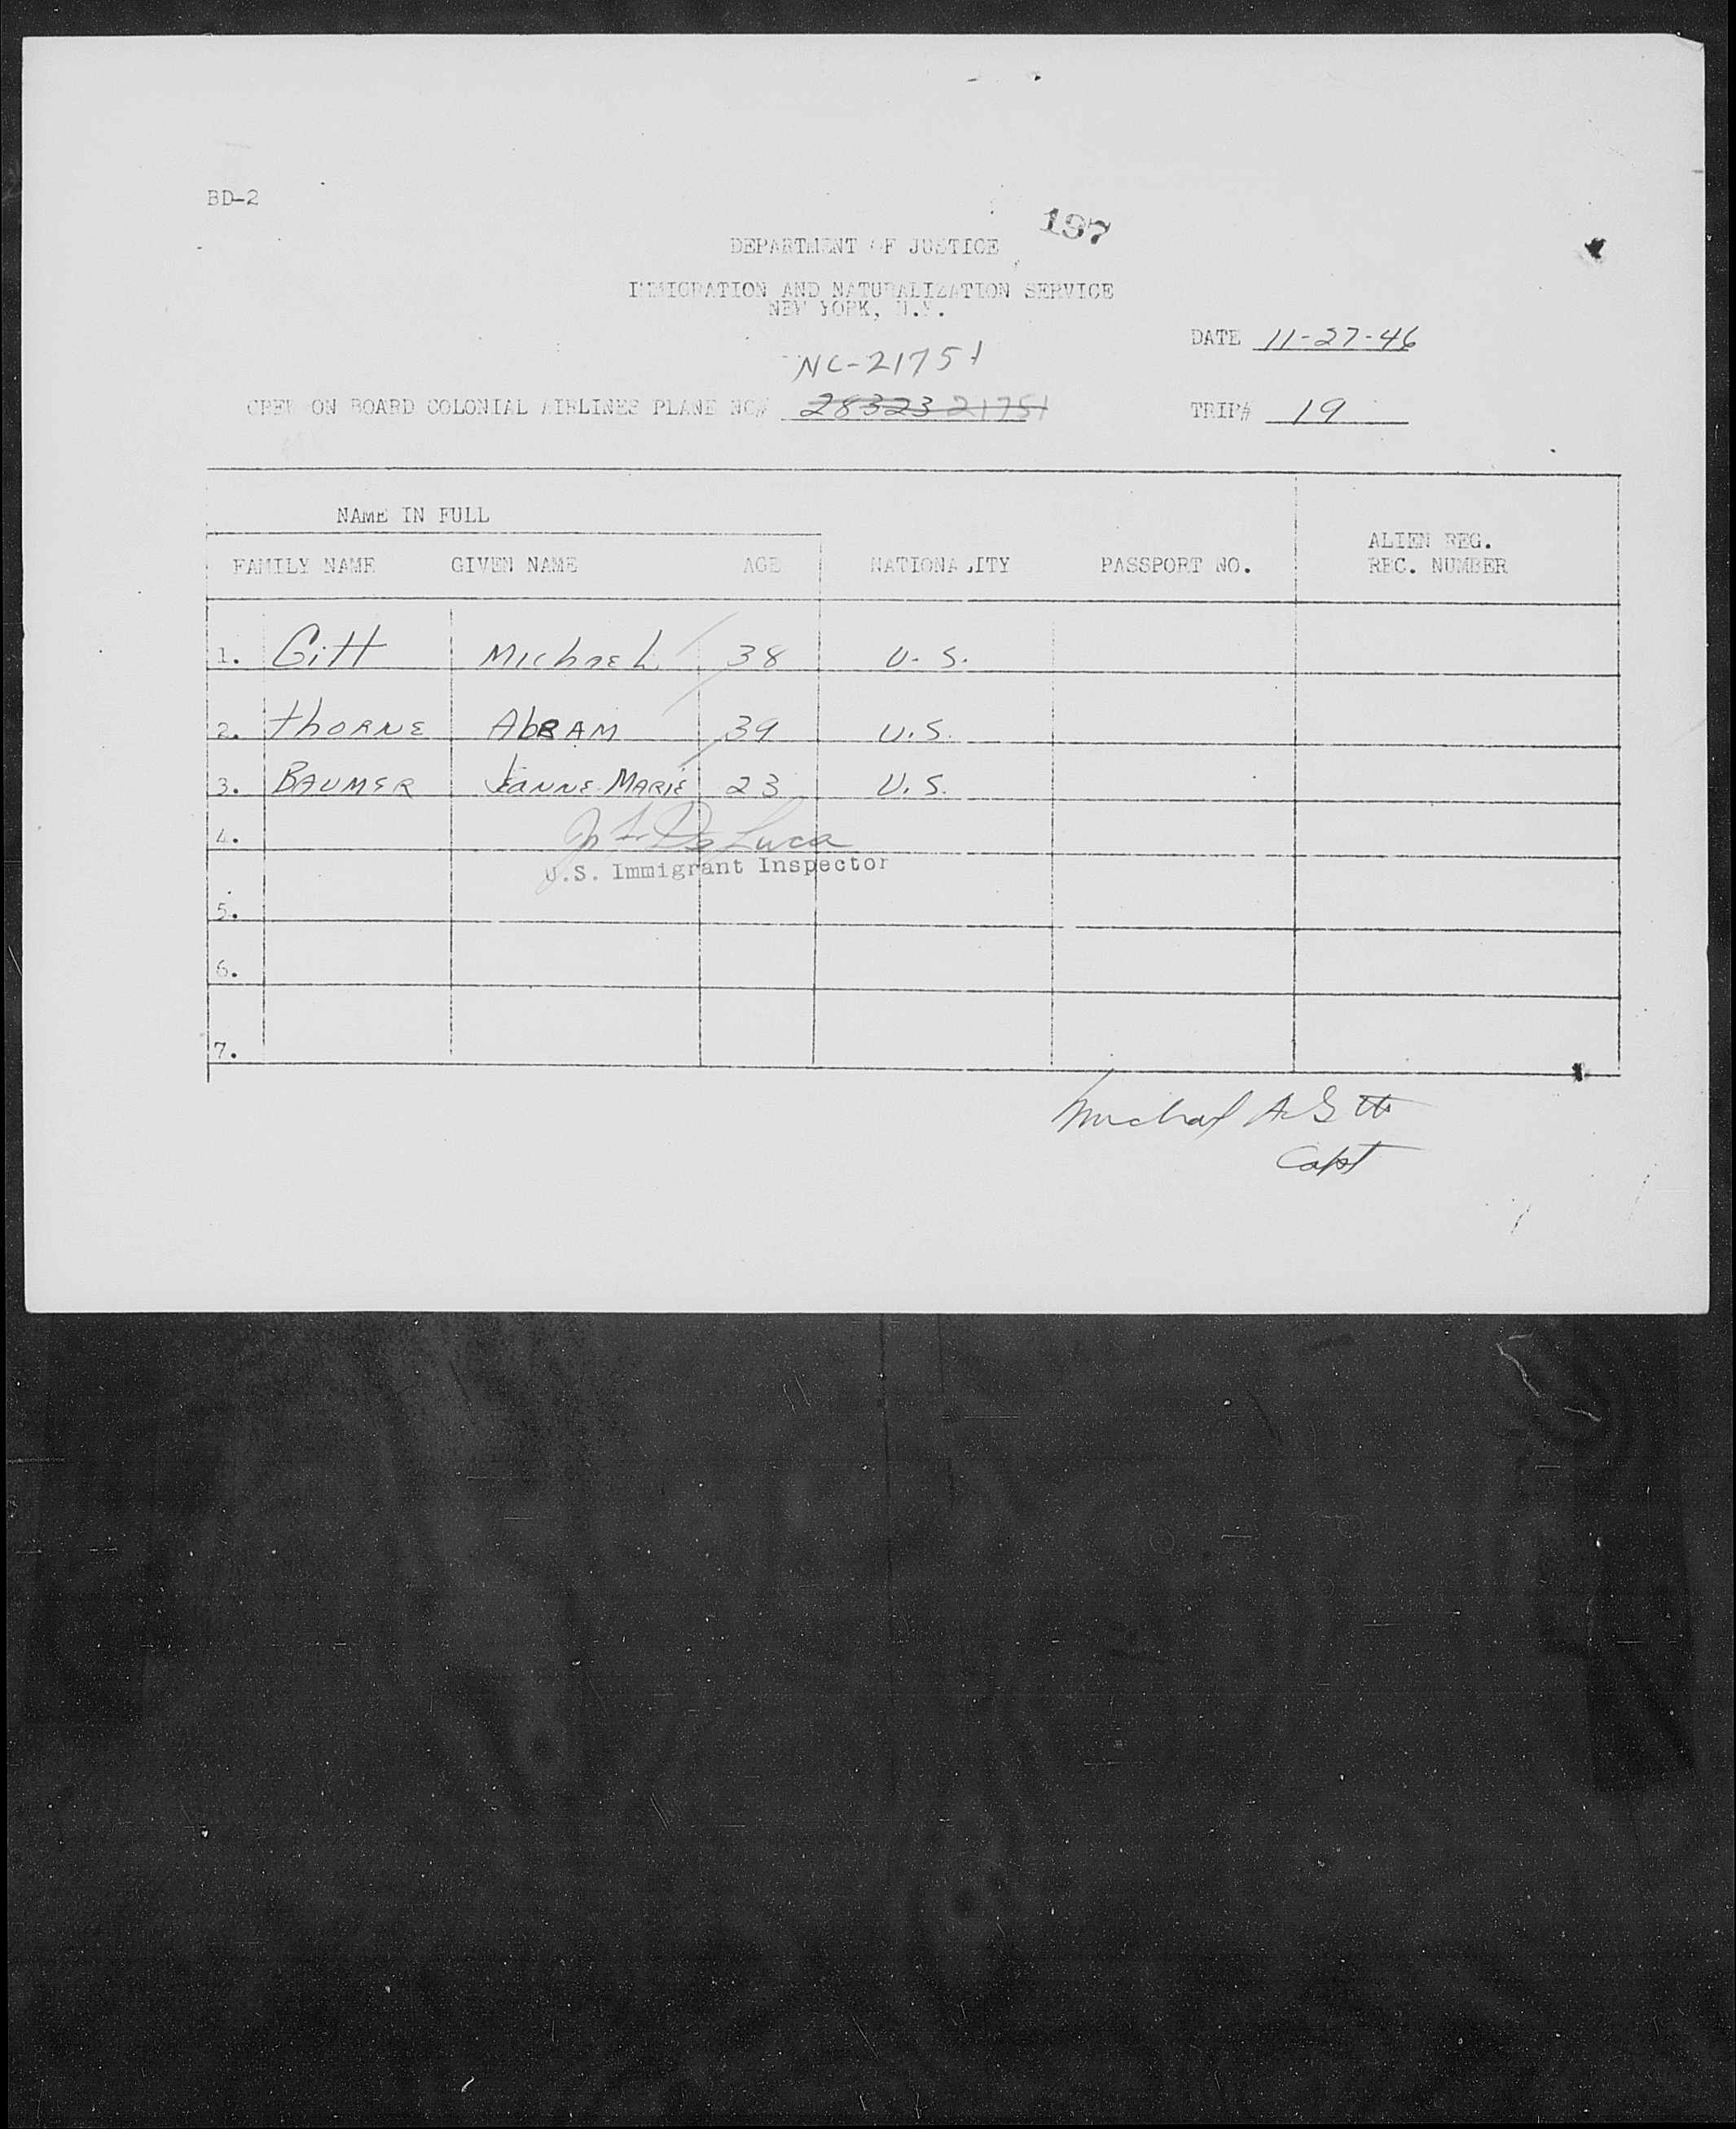 BD-2
197
DEPARTMENT OF JUSTICE
IMMIGRATION AND NATURALIZATION SERVICE
NEW YORK, N.Y.
DATE 11-27-46
NC-21751
CREW ON BOARD COLONIAL AIRLINES PLANE NO# 28323 21751 TRIP# 19
NAME IN FULL
FAMILY NAME GIVEN NAME AGE NATIONALITY PASSPORT NO. ALIEN REG. REC. NUMBER
1. Gitt Michael 38 U.S.
2. Thorne Abram 39 U.S.
3. Baumer Jeanne Marie 23 U.S.
4. De Luca
U.S. Immigrant Inspector
5.
6.
7.
Michael A Gitt
Capt